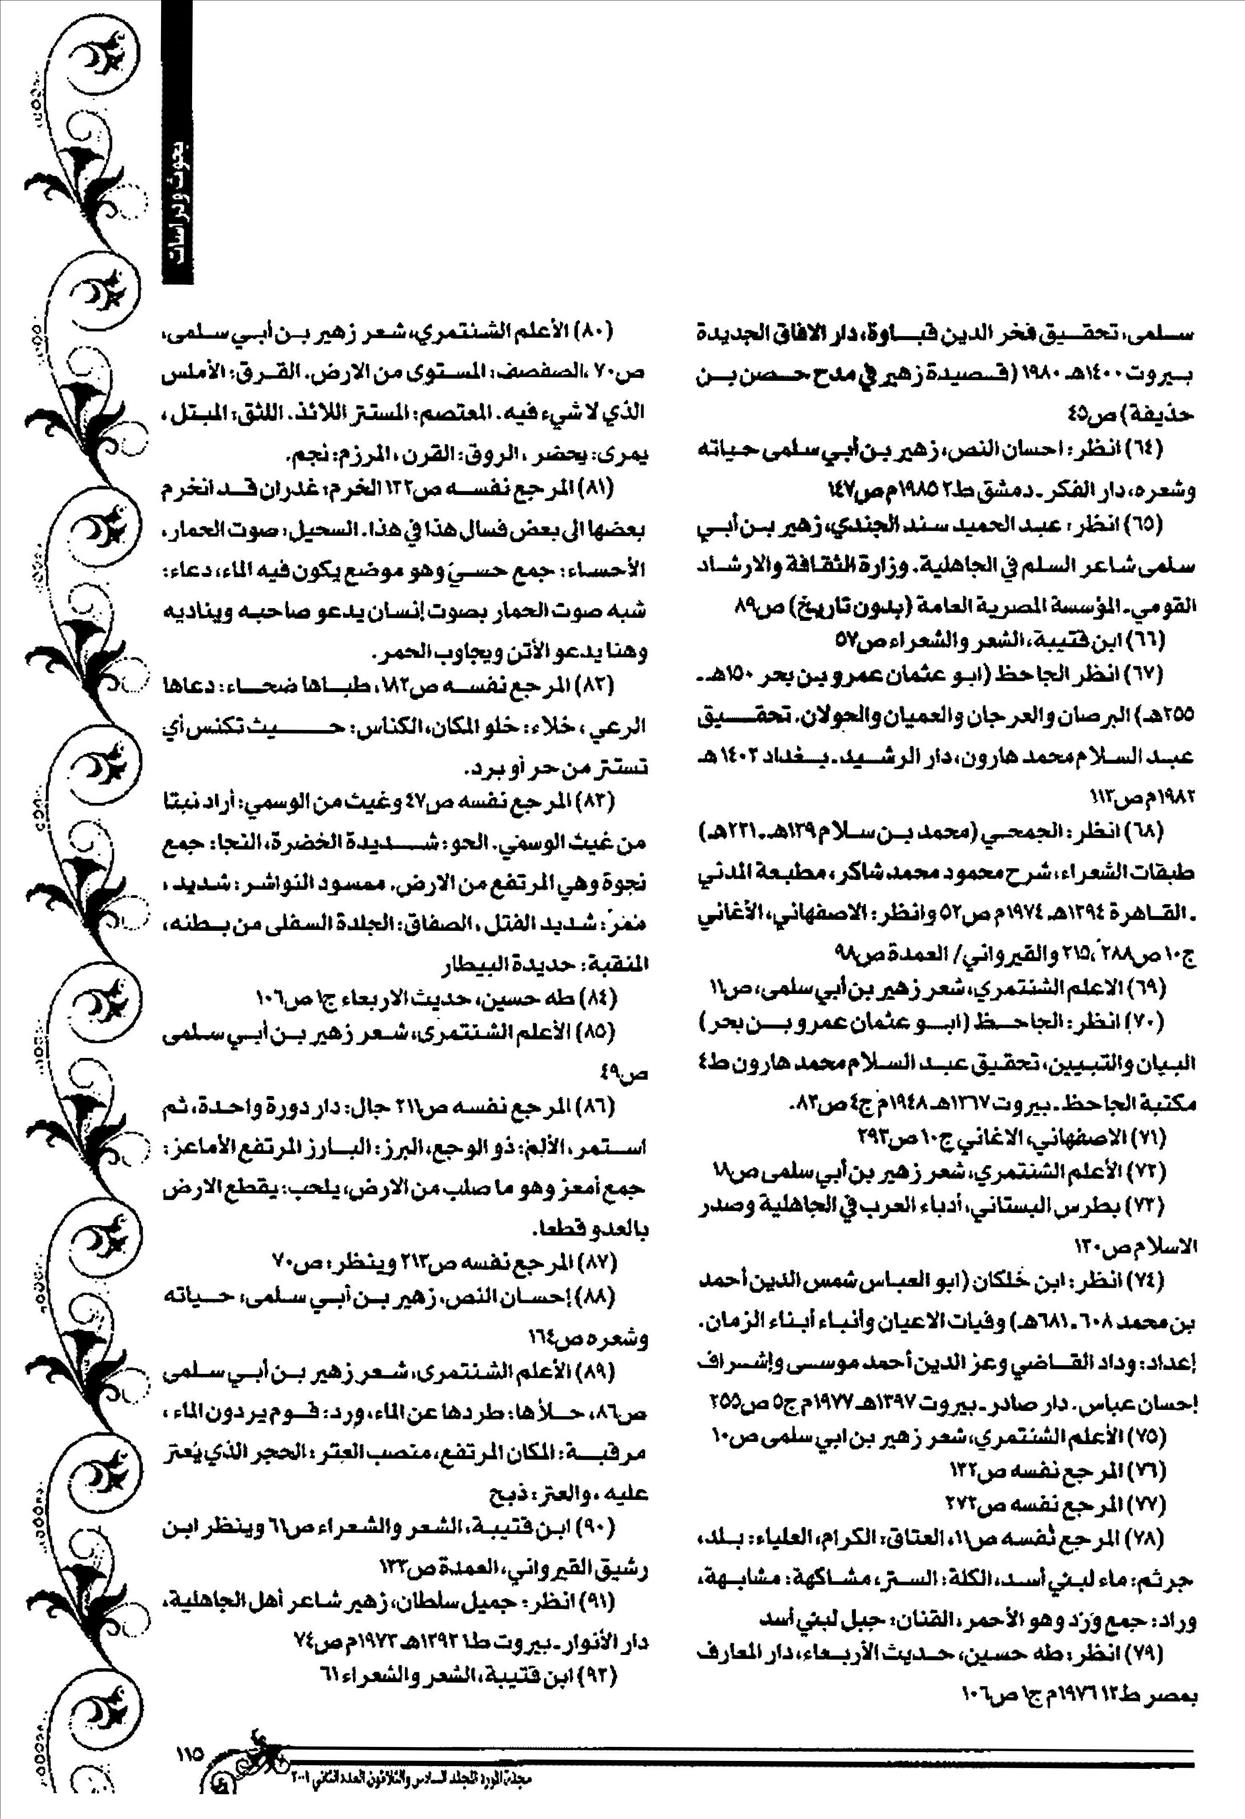 بحوث ودراسات
سلمى، تحقيق فخر الدين قباوة، دار الافاق الجديدة
بيروت ١٤٠٠هـ ١٩٨٠ (قصيدة زهير في مدح حصن بن
حذيفة) ص٤٥
(٦٤) انظر: احسان النص، زهير بن أبي سلمى حياته
وشعره، دار الفكر ـ دمشق ط٢ ١٩٨٥م ص١٤٧
(٦٥) انظر: عبد الحميد سند الجندي، زهير بن أبي
سلمى شاعر السلم في الجاهلية. وزارة الثقافة والارشاد
القومي ـ المؤسسة المصرية العامة (بدون تاريخ) ص٨٩
(٦٦) ابن قتيبة، الشعر والشعراء ص٥٧
(٦٧) انظر الجاحظ (ابو عثمان عمرو بن بحر ١٥٠هـ ـ
٢٥٥هـ) البرصان والعرجان والعميان والحولان. تحقيق
عبد السلام محمد هارون، دار الرشيد ـ بغداد ١٤٠٢هـ
١٩٨٢م ص١١٣
(٦٨) انظر: الجمحي (محمد بن سلام ١٣٩هـ ـ ٢٣١هـ)
طبقات الشعراء، شرح محمود محمد شاكر، مطبعة المدني
ـ القاهرة ١٣٩٤هـ ١٩٧٤م ص٥٢ وانظر: الاصفهاني، الأغاني
ج١٠ ص٢٨٨، ٢١٥ والقيرواني/ العمدة ص٩٨
(٦٩) الاعلم الشنتمري، شعر زهير بن أبي سلمى، ص١١
(٧٠) انظر: الجاحظ (ابو عثمان عمرو بن بحر)
البيان والتبيين، تحقيق عبد السلام محمد هارون ط٤
مكتبة الجاحظ ـ بيروت ١٣٦٧هـ ١٩٤٨م ج٤ ص٨٣.
(٧١) الاصفهاني، الاغاني ج١٠ ص٢٩٣
(٧٢) الأعلم الشنتمري، شعر زهير بن أبي سلمى ص١٨
(٧٣) بطرس البستاني، أدباء العرب في الجاهلية وصدر
الاسلام ص١٣٠
(٧٤) انظر: ابن خلكان (ابو العباس شمس الدين أحمد
بن محمد ٦٠٨ ـ ٦٨١هـ) وفيات الاعيان وأنباء أبناء الزمان.
إعداد: وداد القاضي وعز الدين أحمد موسى وإشراف
إحسان عباس. دار صادر ـ بيروت ١٣٩٧هـ ١٩٧٧م ج٥ ص٢٥٥
(٧٥) الأعلم الشنتمري، شعر زهير بن ابي سلمى ص١٠
(٧٦) المرجع نفسه ص١٣٢
(٧٧) المرجع نفسه ص٢٧٢
(٧٨) المرجع نفسه ص١١، العتاق: الكرام، العلياء: بلد،
جرثم: ماء لبني أسد، الكلة: الستر، مشاكهة: مشابهة،
وراد: جمع وَرْد وهو الأحمر، القنان: جبل لبني أسد
(٧٩) انظر: طه حسين، حديث الأربعاء، دار المعارف
بمصر ط١٢ ١٩٧٦م ج١ ص١٠٦
(٨٠) الأعلم الشنتمري، شعر زهير بن أبي سلمى،
ص٧٠، الصفصف: المستوى من الارض. القرق: الأملس
الذي لا شيء فيه. المعتصم: المستتر اللائذ. اللثق: المبتل،
يمرى: يحضر، الروق: القرن، المرزم: نجم.
(٨١) المرجع نفسه ص١٢٢ الخرم: غدران قد انخرم
بعضها الى بعض فسال هذا في هذا. السحيل: صوت الحمار،
الأحساء: جمع حسيَ وهو موضع يكون فيه الماء، دعاء:
شبه صوت الحمار بصوت إنسان يدعو صاحبه ويناديه
وهنا يدعو الأتن ويجاوب الحمر.
(٨٢) المرجع نفسه ص١٨٢، طباها ضحاء: دعاها
الرعي، خلاء: خلو المكان، الكناس: حيث تكنس أي
تستتر من حر أو برد.
(٨٣) المرجع نفسه ص٤٧ وغيث من الوسمي: أراد نبتا
من غيث الوسمي. الحو: شديدة الخضرة، النجا: جمع
نجوة وهي المرتفع من الارض. ممسود النواشر: شديد،
ممرّ: شديد الفتل، الصفاق: الجلدة السفلى من بطنه،
المنقبة: حديدة البيطار
(٨٤) طه حسين، حديث الاربعاء ج١ ص١٠٦
(٨٥) الأعلم الشنتمرى، شعر زهير بن أبي سلمى
ص٤٩
(٨٦) المرجع نفسه ص٢١١ جال: دار دورة واحدة، ثم
استمر، الألم: ذو الوجع، البرز: البارز المرتفع الأماعز:
جمع أمعز وهو ما صلب من الارض، يلحب: يقطع الارض
بالعدو قطعا.
(٨٧) المرجع نفسه ص٢١٣ وينظر: ص٧٠
(٨٨) إحسان النص، زهير بن أبي سلمى، حياته
وشعره ص١٦٤
(٨٩) الأعلم الشنتمرى، شعر زهير بن أبي سلمى
ص٨٦، حلأها: طردها عن الماء، ورد: قوم يردون الماء،
مرقبة: المكان المرتفع، منصب العتر: الحجر الذي يُعتر
عليه، والعتر: ذبح
(٩٠) ابن قتيبة، الشعر والشعراء ص٦١ وينظر ابن
رشيق القيرواني، العمدة ص١٣٣
(٩١) انظر: جميل سلطان، زهير شاعر أهل الجاهلية،
دار الأنوار ـ بيروت ط١ ١٣٩٣هـ ١٩٧٣م ص٧٤
(٩٢) ابن قتيبة، الشعر والشعراء ٦١
مجلة المورد المجلد السادس والثلاثون العدد الثاني
١١٥